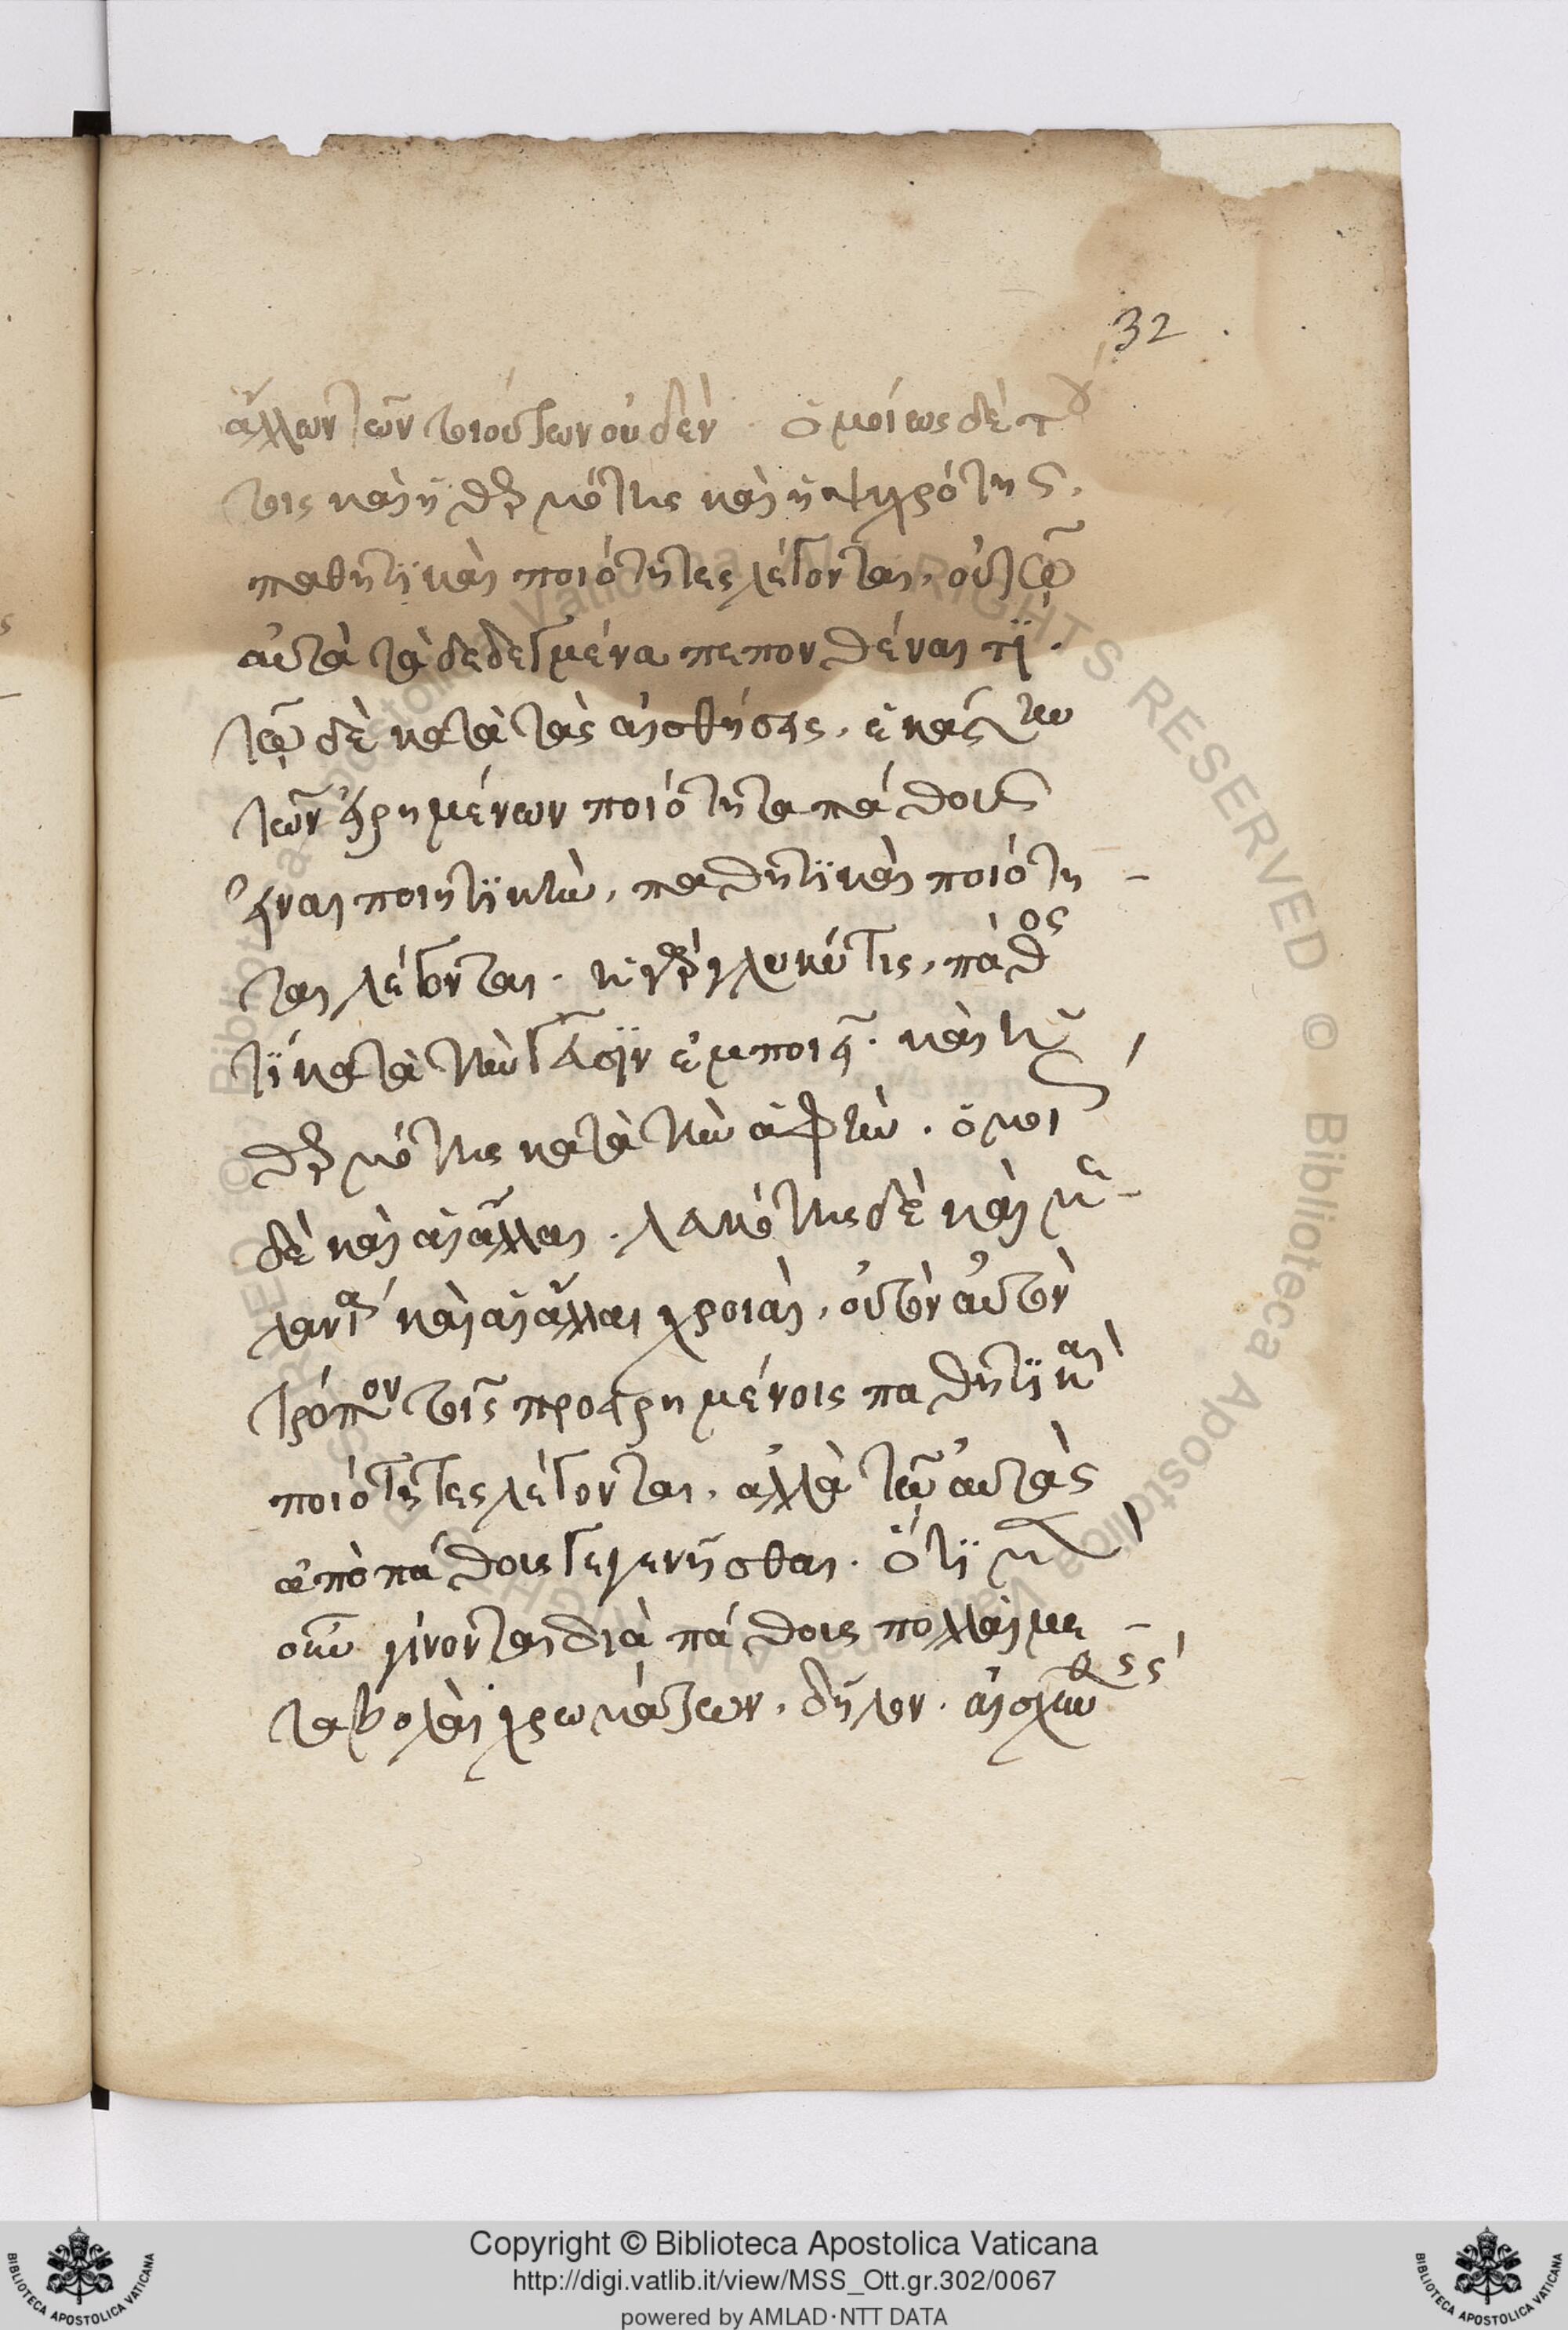 32
ἄλλων τῶν τοιούτων οὐδέν. ὁμοίως δὲ τού
τοις καὶ ἡ θερμότης καὶ ἡ ψυχρότης.
παθητικαὶ ποιότητες λέγονται, οὐ τῷ
αὐτὰ τὰ δεδεγμένα πεπονθέναι τί.
τῷ δὲ κατὰ τὰς αἰσθήσεις, ἑκάστην
τῶν εἰρημένων ποιότητα πάθους
εἶναι ποιητικὴν, παθητικαὶ ποιότη
ται λέγονται. ἥ τε γὰρ γλυκύτις, πάθος
τὶ κατὰ τὴν γεῦσιν ἐμποιεῖ. καὶ ἡ
θερμότης κατὰ τὴν ἁφήν. ὁμοίως
δὲ καὶ αἱ ἄλλαι. λευκότης δὲ καὶ με
λανία καὶ αἱ ἄλλαι χροιαὶ, οὐ τὸν αὐτὸν
τρόπον τοῖς προειρημένοις παθητικαὶ
ποιότητες λέγονται. ἀλλὰ τῷ αὐτὰς
ἀπὸ πάθους γεγενῆσθαι. ὅτι μὲν
οὖν γίνονται διὰ πάθους πολλαὶ με
ταβολαὶ χρωμάτων, δῆλον. αἰσχυνθεὶς
Copyright © Biblioteca Apostolica Vaticana
http://digi.vatlib.it/view/MSS_Ott.gr.302/0067
powered by AMLAD·NTT DATA